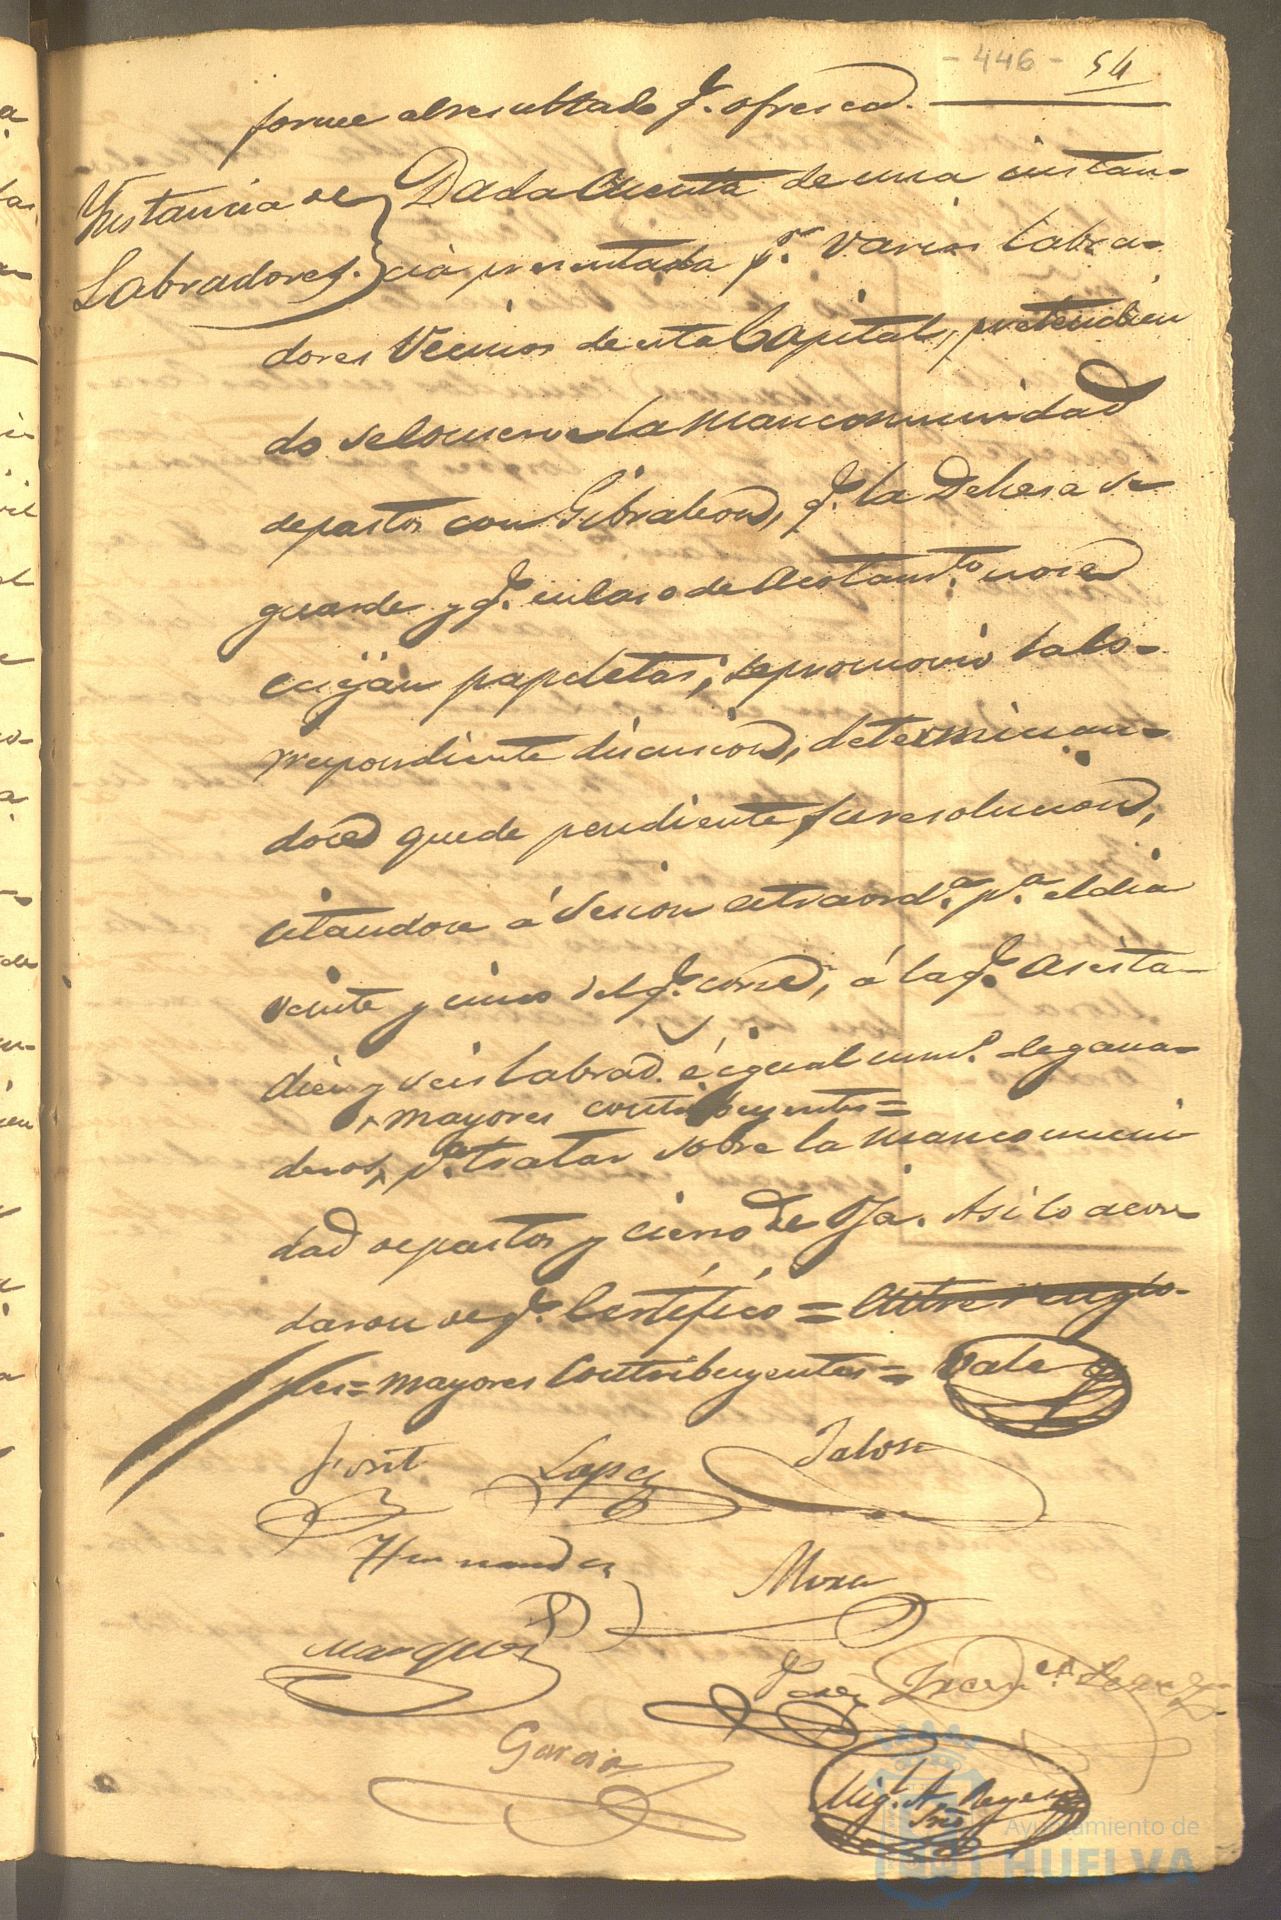 - 446 - 54
forme al resultado q.e ofresca.
Instancia de
Labradores.
Dada Cuenta de una instan-
cia presentada p.r varios labra-
dores Vecinos de esta Capital, pretendien
do se conserve la mancomunidad
de pastos con Gibraleon, q.e la Dehesa se
guarde y q.e en caso de Acotam.to no se
exijan papeletas; se promovió la co-
rrespondiente discusion, determinan-
dose quede pendiente su resolucion,
citandose á Sesion extraord.a p.a el dia
veinte y cinco del q.e corre, á la q.e asista-
diez y seis labrad.s é igual num.o de gana-
mayores contribuyentes =
deros, p.a tratar sobre la mancomuni
dad de pastos y cierre de Oja. Asi lo acor-
daron de q.e Certífico = Entre renglo-
nes = mayores Contribuyentes = Vale
Font Lopez Jalon
Hernandez Mora
Marquez
Garcia
Mig.l A. Reyes
Srio
Ayuntamiento de
HUELVA